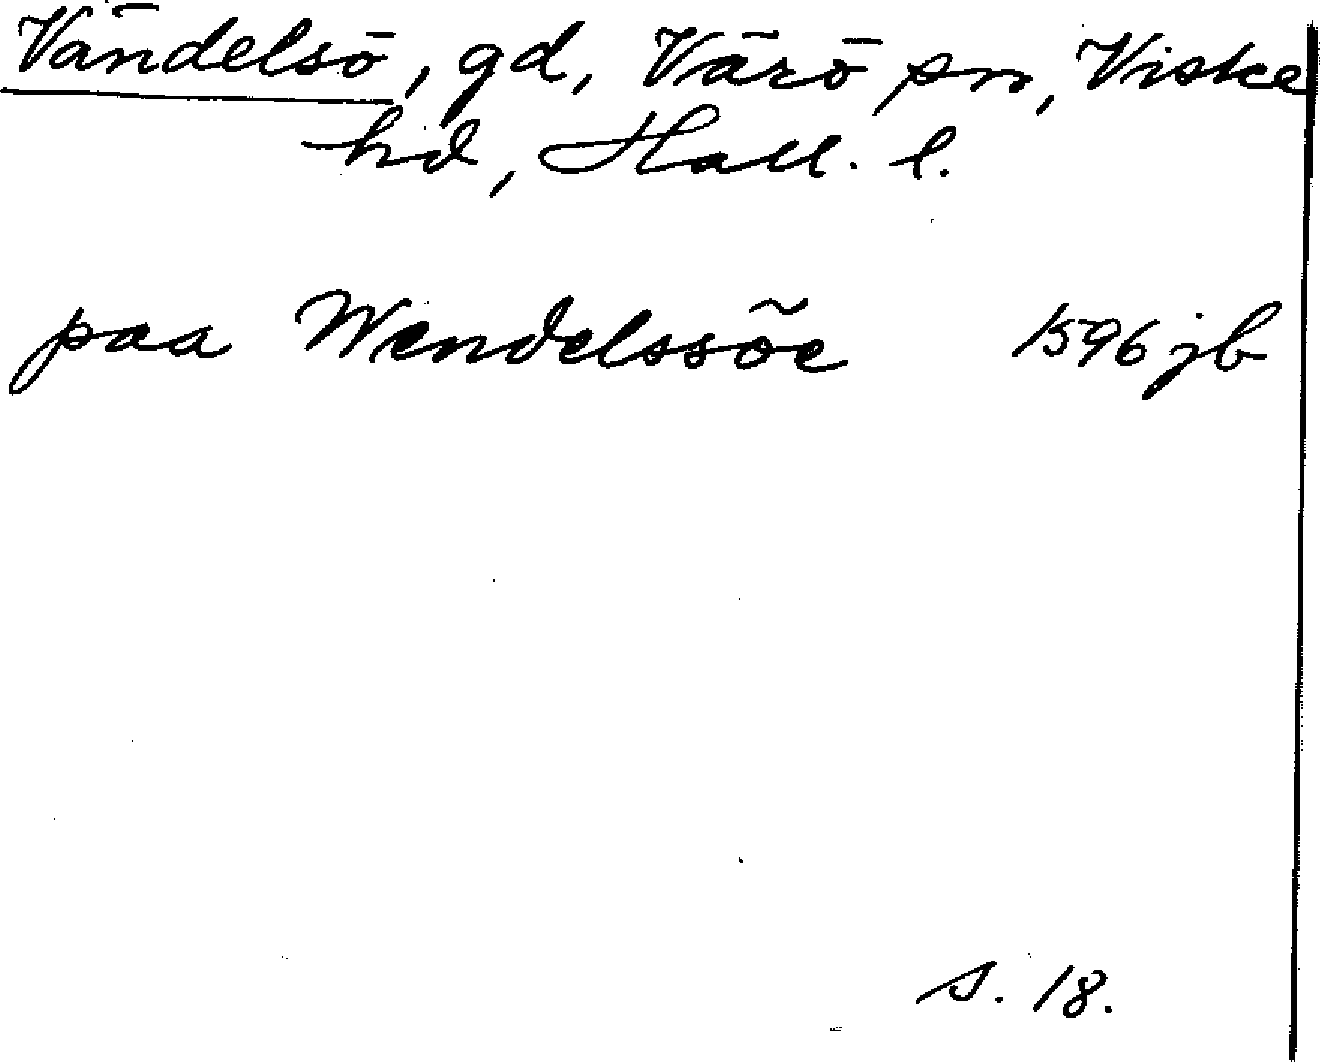 Vändelsö, gd, Värö sn, Viske
hd, Hall. l.
paa Wendelssöe 1596 jb
s. 18.